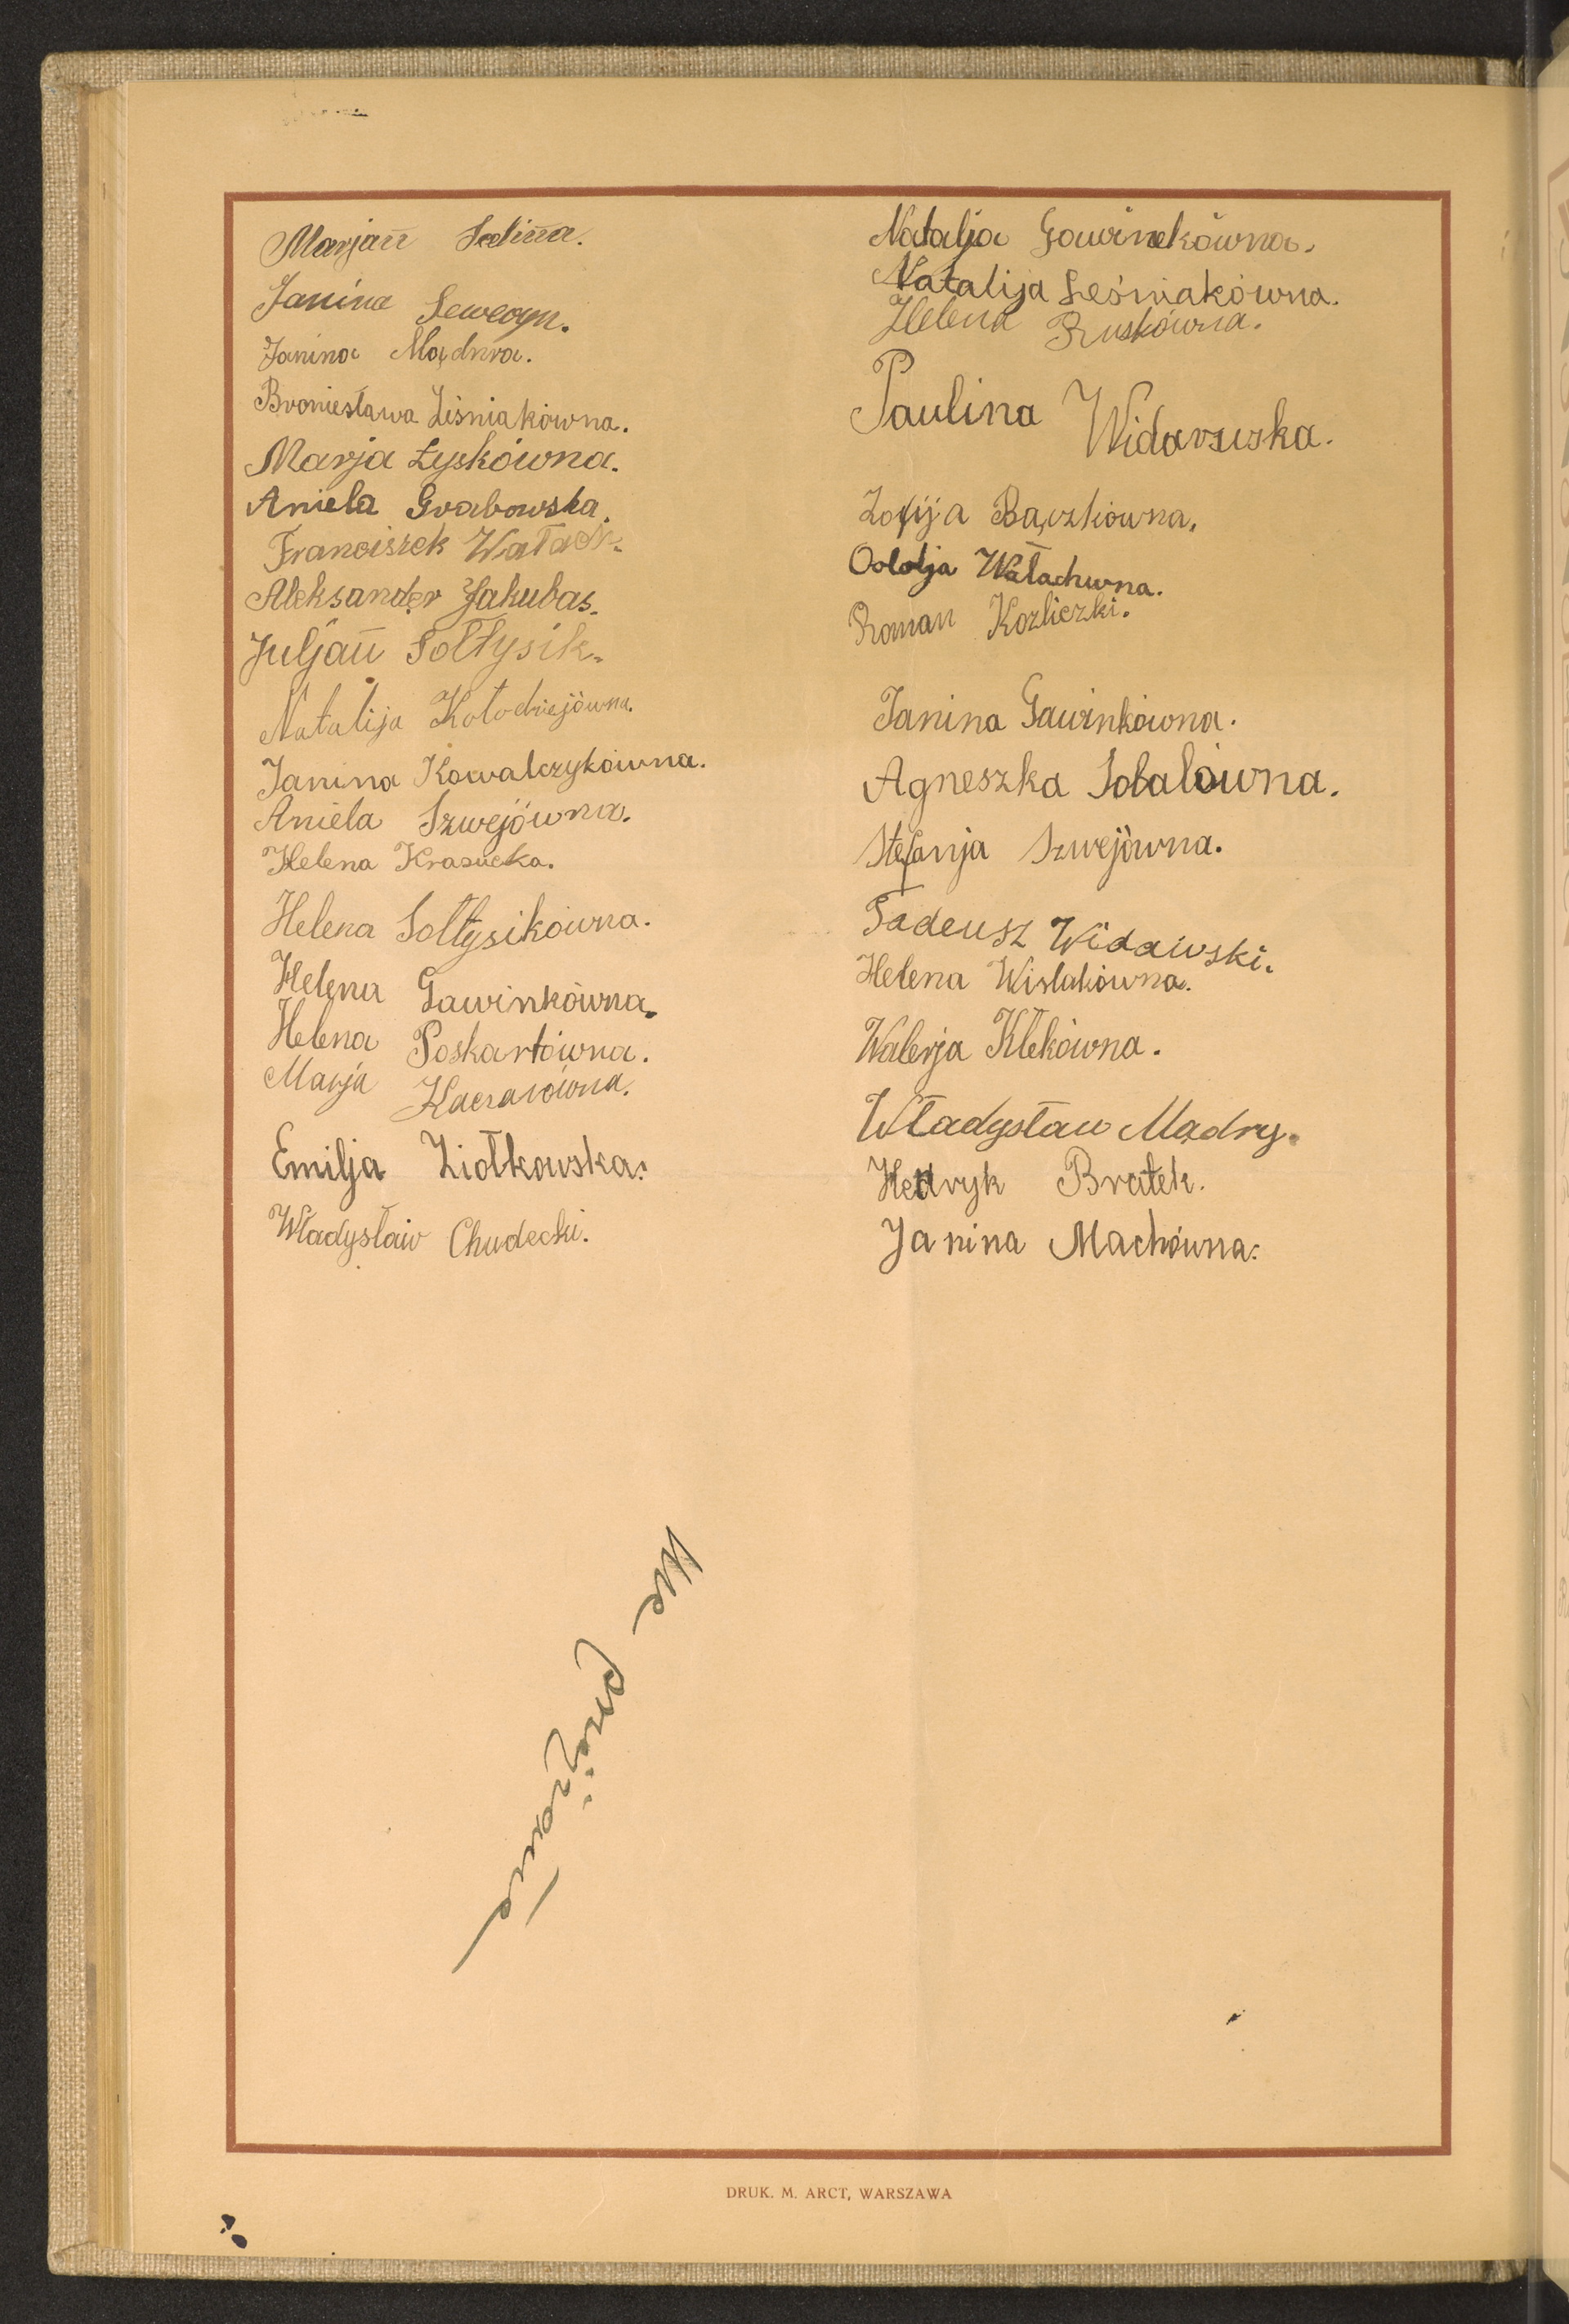 Marjan Sadina.
Janina Seweryn.
Janina Mądra.
Broniesława Liśniakówna.
Marja Łyskówna.
Aniela Grabowska.
Franciszek Wałach.
Aleksander Jakubas.
Juljan Sołtysik.
Natalija Kołodziejówna.
Janina Kowalczykówna.
Aniela Szwejówna.
Helena Krasucka.
Helena Sołtysikówna.
Helena Gawinkówna.
Helena Poskartówna.
Marja Kacrarówna.
Emilja Ziołkowska.
Władysław Chudecki.
Natalja Gawinekówna.
Natalija Leśniakówna.
Helena Ruskówna.
Paulina Widarwska.
Zofija Bączkówna.
Wałachwna.
Roman Kozliczki.
Janina Gawinkówna.
Agneszka Sobalówna.
Stefanja Szwejówna.
Tadeusz Widawski.
Helena Wislakówna.
Walerja Kłekówna.
Władysław Mądry.
Henryk Bratek.
Janina Machówna.
DRUK. M. ARCT, WARSZAWA